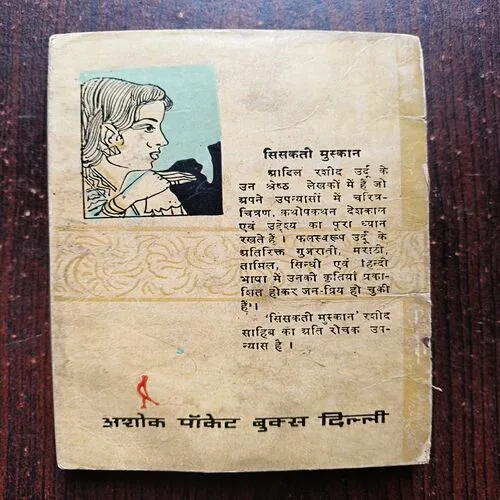 सिसकती मुस्कान
आदिल रशीद उर्दू के
उन श्रेष्ठ लेखकों में हैं जो
अपने उपन्यासों में चरित्र-
चित्रण, कथोपकथन देशकाल
एवं उद्देश्य का पूरा ध्यान
रखते हैं । फलस्वरूप उर्दू के
अतिरिक्त गुजराती, मराठी,
तामिल, सिन्धी एवं हिन्दी
भाषा में उनकी कृतियां प्रका-
शित होकर जन-प्रिय हो चुकी
हैं ।
'सिसकती मुस्कान' रशीद
साहिब का अति रोचक उप-
न्यास है ।
अशोक पॉकेट बुक्स दिल्ली